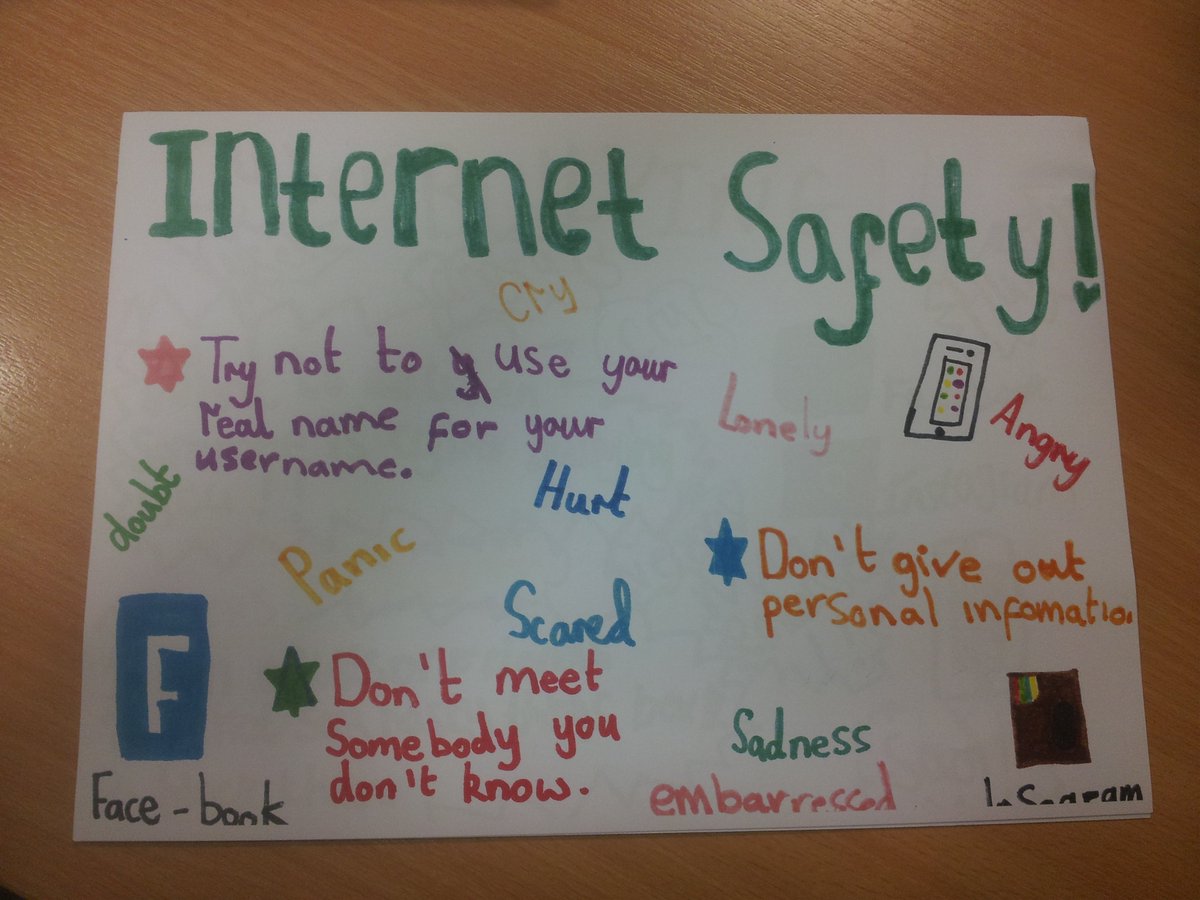 Internet Safety!
cry
Try not to use your
real name for your
username.
Lonely
Angry
Hurt
doubt
Panic
Don't give out
personal infomatio
Scared
F
Don't meet
Somebody you
don't know.
Sadness
embarressed
Face-book